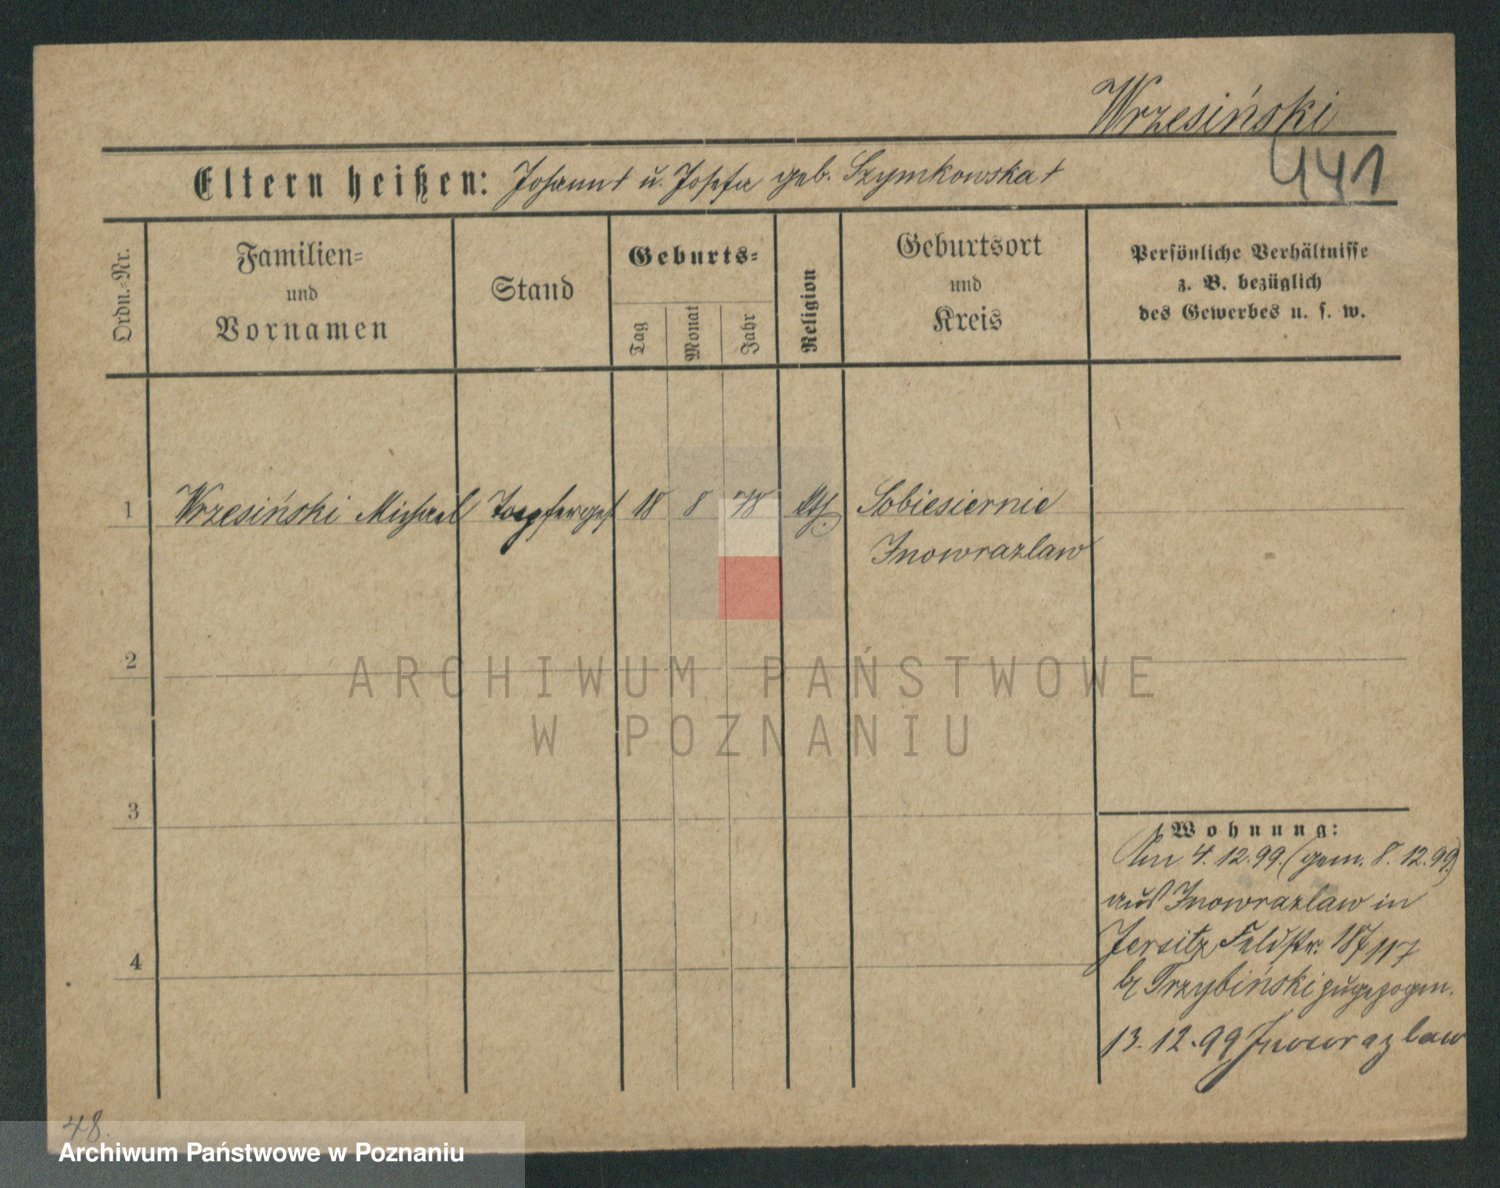 Wrzesiński
441
Eltern heißen: Johann † u. Josefa geb. Szymkowska †
Ordn.-Nr.
Familien-
und
Vornamen
Stand
Geburts-
Tag
Monat
Jahr
Religion
Geburtsort
und
Kreis
Persönliche Verhältnisse
z. B. bezüglich
des Gewerbes u. s. w.
1 Wrzesiński Michael Toepferges. 18 8 78 kth. Sobiesiernie
Inowrazlaw
2
3
4
Wohnung:
Am 4.12.99. (gem. 8.12.99)
aus Inowrazlaw in
Jersitz Feldstr.
b/ Trzybiński zugezogen.
13.12.99 Inowrazlaw
48.
ARCHIWUM PAŃSTWOWE
W POZNANIU
Archiwum Państwowe w Poznaniu